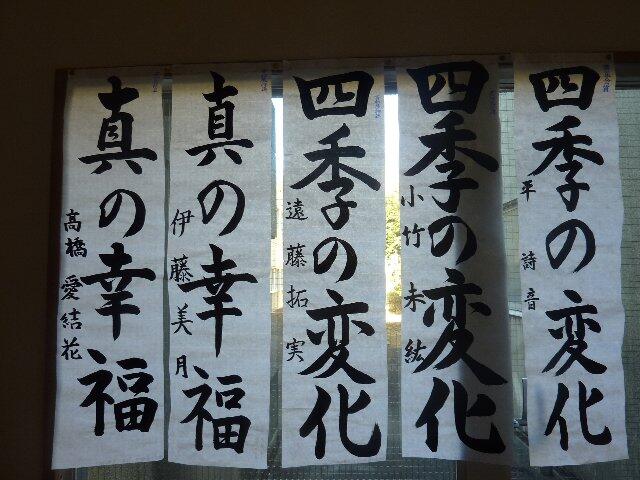 四季の変化
平詩音
四季の変化
小竹未紘
四季の変化
遠藤拓実
真の幸福
伊藤美月
真の幸福
高橋愛結花